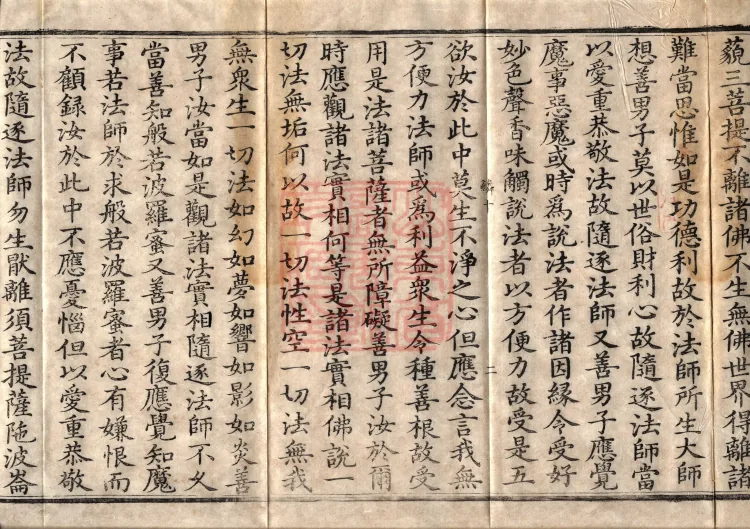 藐三菩提不離諸佛不生無佛世界得離諸
難當思惟如是功德利故於法師所生大師
想善男子莫以世俗財利心故隨逐法師當
以愛重恭敬法故隨逐法師又善男子應覺
魔事惡魔或時爲說法者作諸因緣令受好
妙色聲香味觸說法者以方便力故受是五
欲汝於此中莫生不淨之心但應念言我無
方便力法師或爲利益衆生令種善根故受
用是法諸菩薩者無所障礙善男子汝於爾
時應觀諸法實相何等是諸法實相佛說一
切法無垢何以故一切法性空一切法無我
無衆生一切法如幻如夢如響如影如炎善
男子汝當如是觀諸法實相隨逐法師不久
當善知般若波羅蜜又善男子復應覺知魔
事若法師於求般若波羅蜜者心有嫌恨而
不顧録汝於此中不應憂惱但以愛重恭敬
法故隨逐法師勿生厭離須菩提薩陁波崙